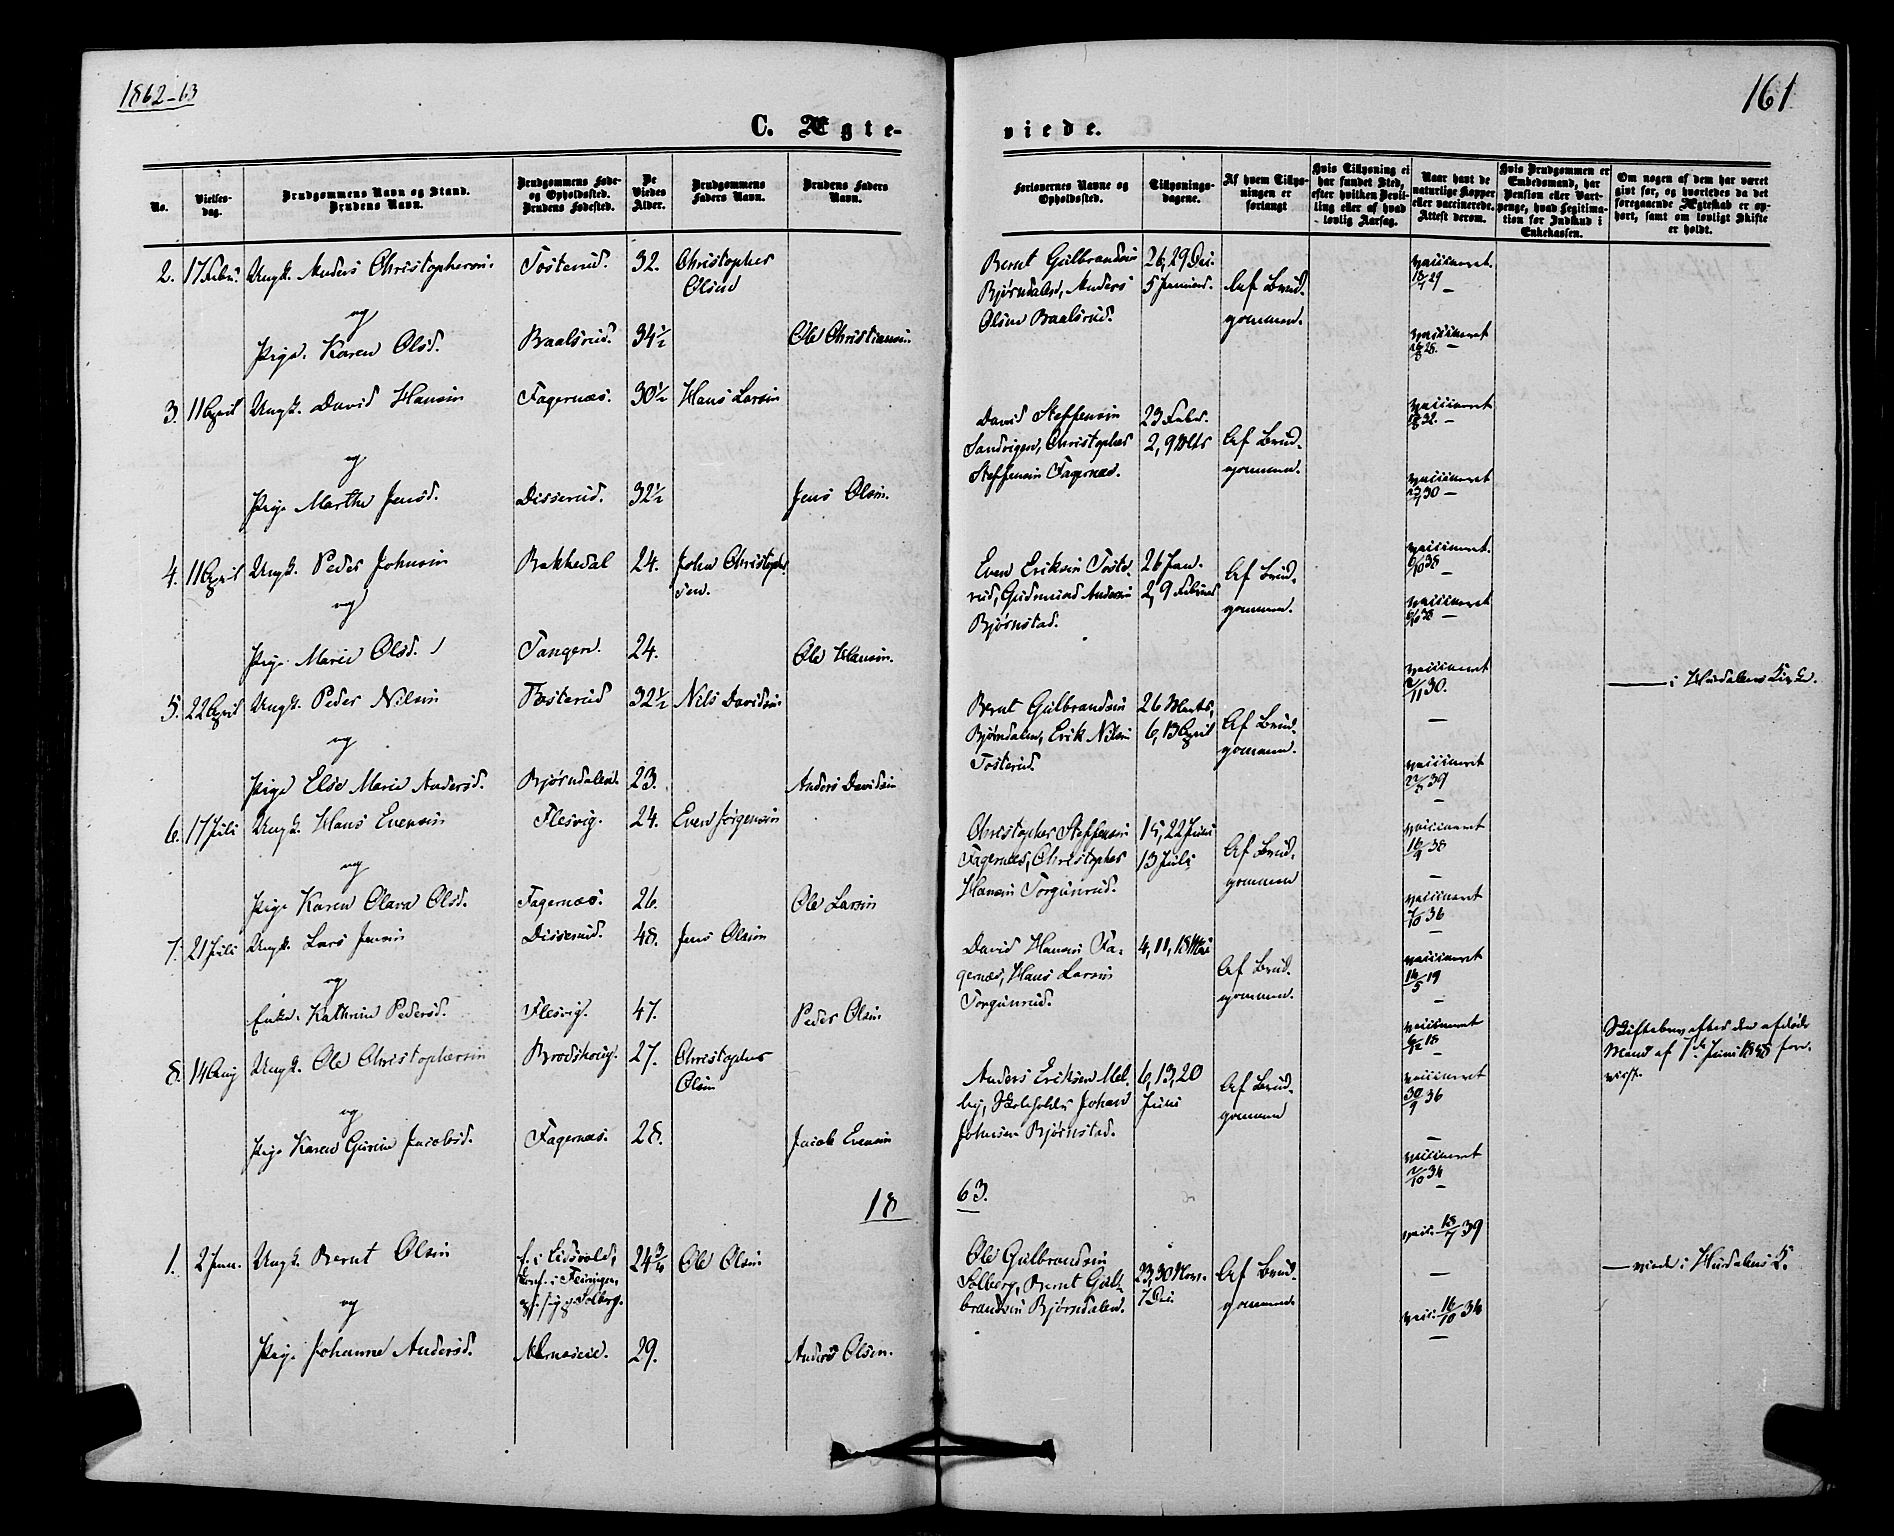 1862-63
161
C. Ægte-
viede.
No.
Vielses-
dag.
Brudgommens Navn og Stand.
Brudens Navn.
Brudgommens Føde-
og Opholdssted.
Brudens Fødested.
De
Viedes
Alder.
Brudgommens
Faders Navn.
Brudens Faders
Navn.
Forlovernes Navne og
Opholdssted.
Tillysnings-
dagene.
Af hvem Tillys-
ningen er
forlangt
Hvis Tillysning ei
har fundet Sted,
efter hvilken Bevil-
ling eller af hvad
lovlig Aarsag.
Naar havt de
naturlige Kopper
eller vaccinerede.
Attest derom.
Hvis Brudgommen er
Embedsmand, har
Pension eller Vart-
penge, hvad Legitima-
tion for Indskud i
Enkekassen.
Om nogen af dem har været
gift før, og hvorledes da det
foregaaende Ægteskab er op-
hørt, samt om lovligt Skifte
er holdt.
2. 17 Febr. Ungk. Anders Christophersen Tosterud. 32. Christopher
Olsen
og
Pige. Karen Olsd. Baalsrud. 34½ Ole Christiansen
Bernt Gulbrandsen 26, 29 Dec. vaccineret
Bjørndalen, Anders 5 Januar. Af Brud-
Olsen Baalsrud. gommen.
vaccineret
3. 11 April Ungk. David Hansen Fagernæs. 30½ Hans Larsen
og
Pige Marthe Jensd. Disserud. 32½ Jens Olsen.
David Steffensen 23 Febr. vaccineret
Sandvigen, Christopher 2, 9 Mts Af Brud-
Steffensen Fagernæs. gommen.
vaccineret
4. 11 April Ungk. Peder Johnsen Bakkedal 24. John Christopher
sen.
og
Pige Marie Olsd. Tangen. 24. Ole Hansen.
Even Eriksen Toste- 26 Jan. Af Brud- vaccineret
rud, Gudmund Andersen 2, 9 Februar gommen.
Bjørnstad.
vaccineret
5. 22 April Ungk. Peder Nilsen Tosterud 32½ Nils Davidsen
og
Pige Else Marie Andersd. Bjørndalen. 23. Anders Davidsen
vaccineret
2/11 30. i Hurdalens Kirke.
Bernt Gulbrandsen 26 Marts,
Bjørndalen, Erik Nilsen 6, 13 April Af Brud-
Tosterud. gommen.
vaccineret
6. 17 Juli Ungk. Hans Evensen Flesvig. 24. Even Jørgensen
og
Pige Karen Olava Olsd. Fagernæs. 26. Ole Larsen
Christopher Steffensen 15, 22 Juni vaccineret
Fagernæs, Christopher 13 Juli Af Brud-
Hansen Torgunrud. gommen
16/9 38
vaccineret
7/10 36
7. 21 Juli Ungk. Lars Jensen Disserud. 48. Jens Olsen
og
Enke. Kathrine Pedersd. Flesvig. 47. Peder Olsen
David Hansen Fa- 4, 11, 18 Mai vaccineret
gernæs, Hans Larsen Af Brud-
Torgunrud. gommen.
16/5 19
vaccineret
Skiftebrev efter den afdøde
Mand af 7de Juni 1858 fore-
vist.
8. 14 Aug Ungk. Ole Christophersen Brodshoug. 27. Christopher
Olsen
og
Pige Karen Gurine Jacobsd. Fagernæs. 28. Jacob Evensen
Anders Eriksen Mel- 6, 13, 20 Af Brud- vaccineret
by, Skoleholder Johan Juni gommen
Johnsen Bjørnstad.
30/9 36
vaccineret
2/10 34
18 63.
1. 2 Jan. Ungk. Bernt Olsen f. i Eidsvold, 24¾ Ole Olsen
og
Pige Johanne Andersd. 29. Anders Olsen.
Ole Gulbrandsen vacc. 18/7 39
Solberg, Bernt Gul- 23, 30 Nov. Af Brud-
brandsen Bjørndalen. 7 Dec. gommen
vacc. 16/10 34
viede i Hurdalens K.